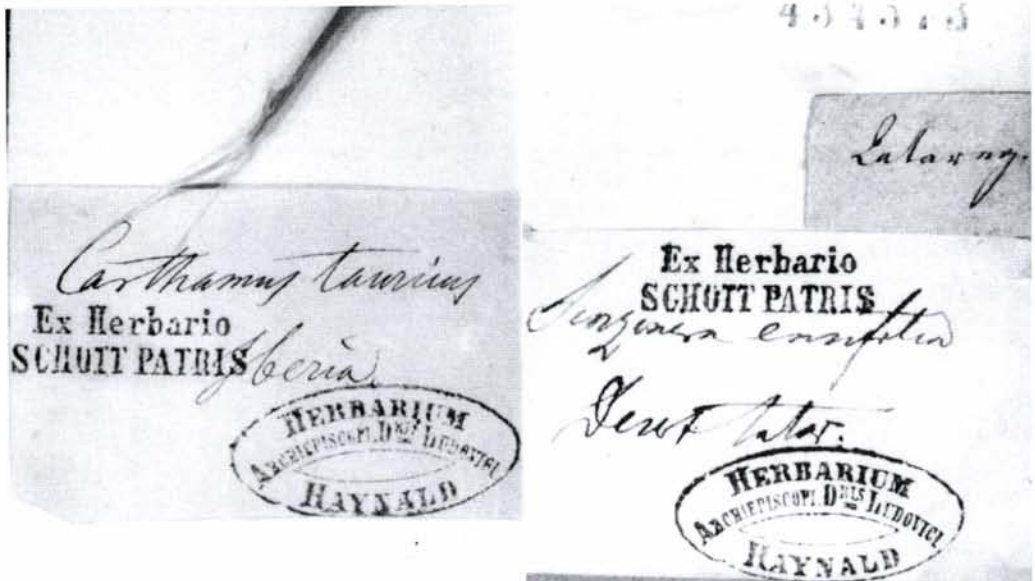 Carthamus tauricus
Ex Herbario
SCHOTT PATRIS
Iberia.
HERBARIUM
ARCHIEPISCOPI. DNIS LUDOVICI
HAYNALD
Ex Herbario
SCHOTT PATRIS
ensifolia
Desert tatar.
HERBARIUM
ARCHIEPISCOPI. DNIS LUDOVICI
HAYNALD